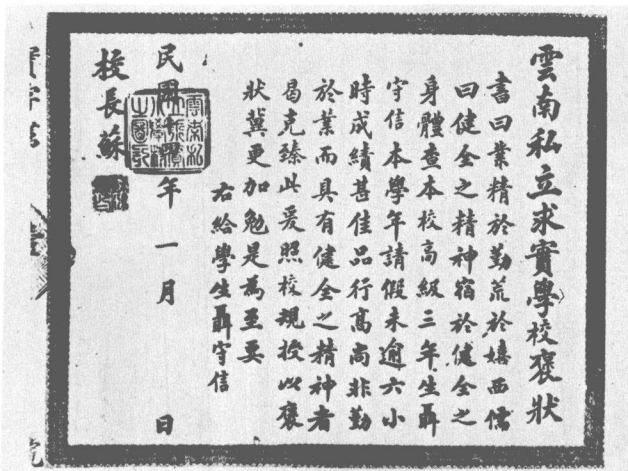 雲南私立求實學校褒狀
書曰業精於勤荒於嬉西儒
曰健全之精神宿於健全之
身體查本校高級三年生聶
守信本學年請假未逾六小
時成績甚佳品行高尚非勤
於業而具有健全之精神者
曷克臻此爰照校規授以褒
狀冀更加勉是為至要
右給學生聶守信
民國年一月日
校長蘇